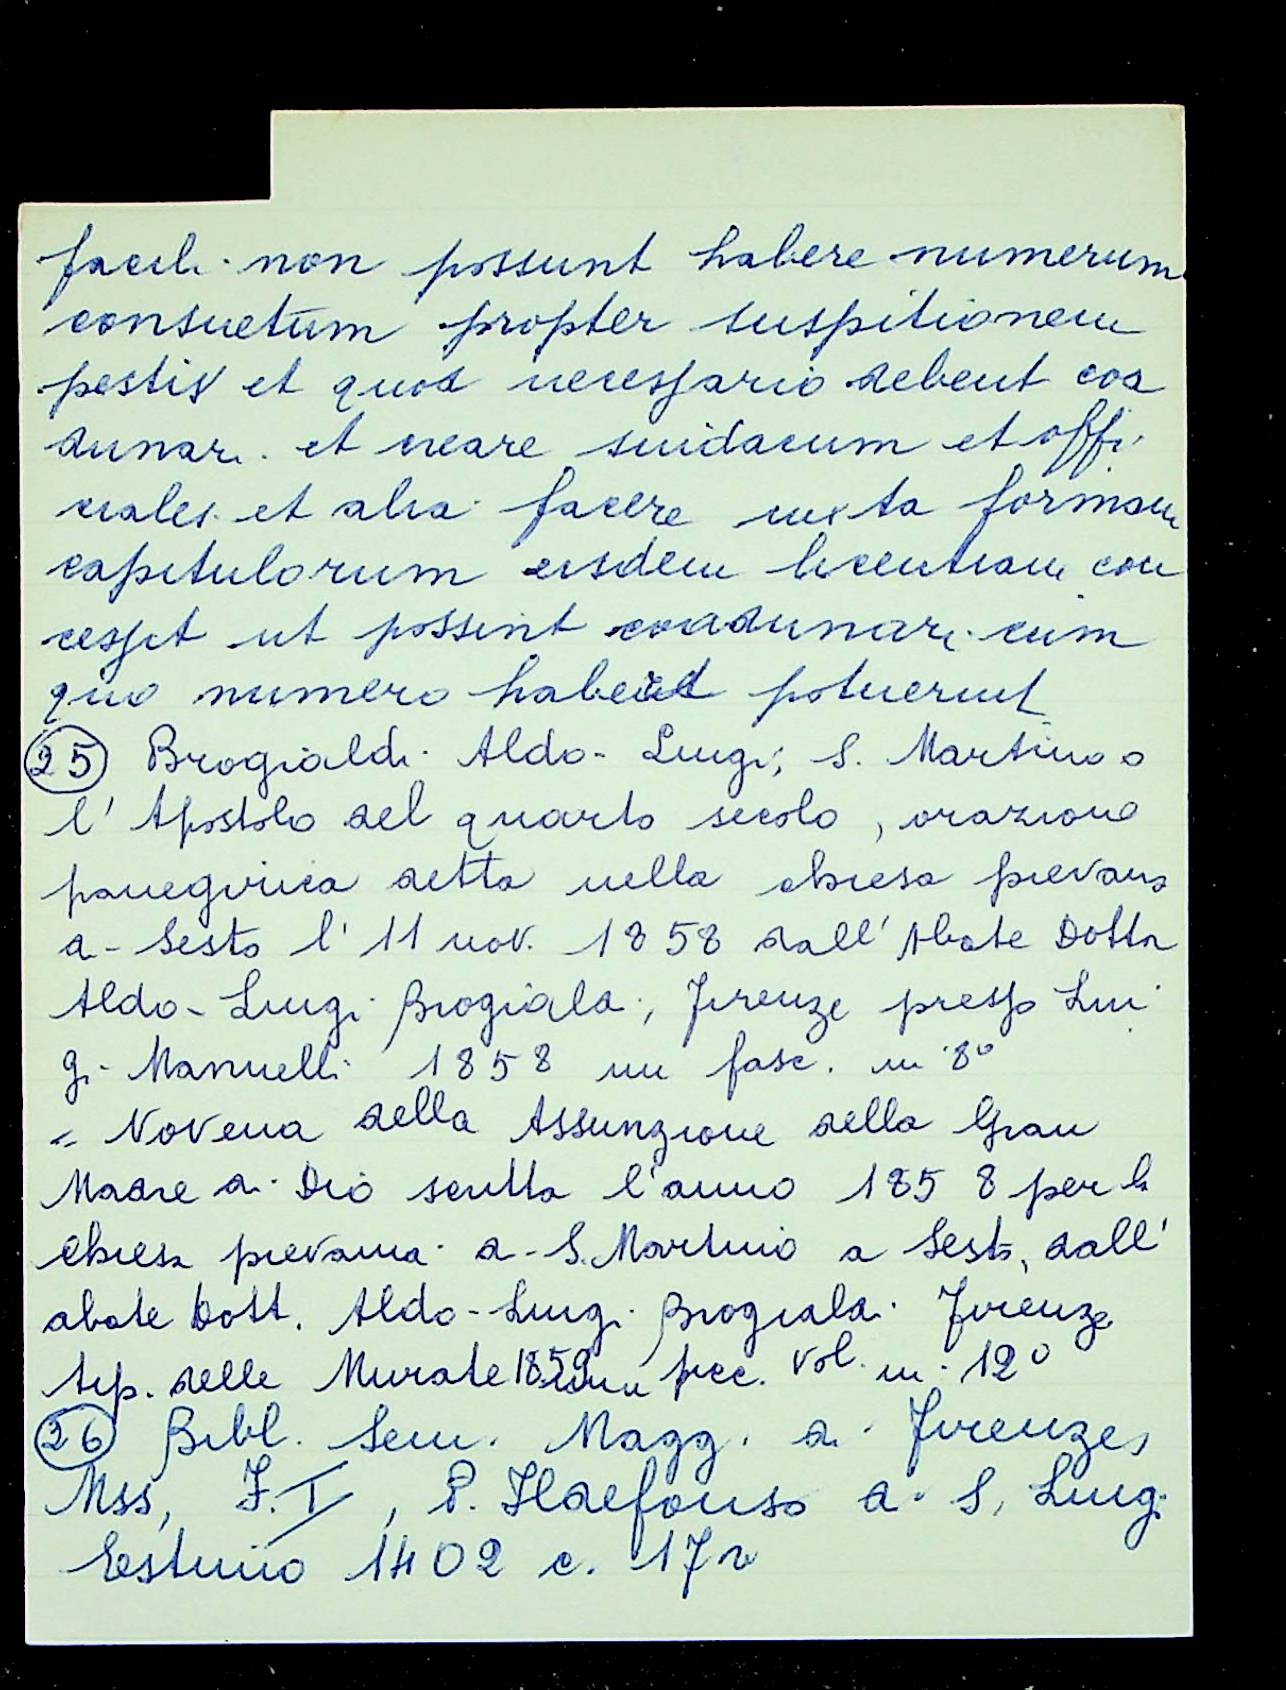 facili non possunt habere numerum
consuetum propter suspitionem
pestis et quod necessario debent coa
dunari et creare sindacum et offi
ciales et alia facere iuxta formam
capitulorum eisdem licentiam con
cessit ut possint coadunari cum
quo numero potuerunt
(25) Brogialdi Aldo-Luigi; S. Martino o
l'Apostolo del quarto secolo, orazione
panegirica detta nella chiesa pievana
di Sesto l'11 nov. 1858 dall'Abate Dottor
Aldo-Luigi Brogialdi, Firenze presso Lui
gi Manuelli 1858 un fasc. in 8°
= Novena della Assunzione della Gran
Madre di Dio scritta l'anno 1858 per la
Chiesa pievana di S. Martino a Sesto, dall'
abate Dott. Aldo-Luigi Brogialdi Firenze
tip. delle Murate 1859 un picc. vol. in 12°
(26) Bibl. Sem. Magg. di Firenze,
Mss, F.I, P. Ildefonso di S. Luigi
Estimo 1402 c. 17r